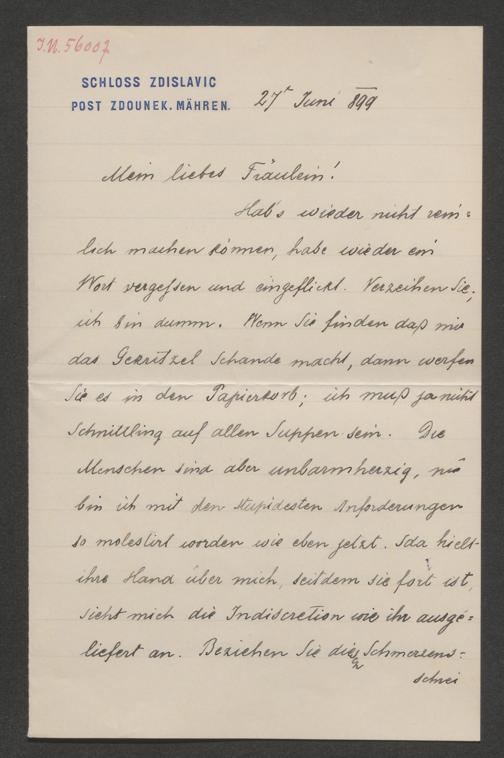 I.N. 56007
SCHLOSS ZDISLAVIC
POST ZDOUNEK. MÄHREN.
27t Juni 899
Mein liebes Fräulein!
Hab's wieder nicht rein=
lich machen können, habe wieder ein
Wort vergessen und eingeflickt. Verzeihen Sie,
ich bin dumm. Wenn Sie finden daß mir
das Gekritzel Schande macht, dann werfen
Sie es in den Papierkorb; ich muß ja nicht
Schnittling auf allen Suppen sein. Die
Menschen sind aber unbarmherzig, nie
bin ich mit den stupidesten Anforderungen
so molestirt worden wie eben jetzt. Ida hielt
ihre Hand über mich, seitdem sie fort ist,
sieht mich die Indiscretion wie ihr ausge=
liefert an. Beziehen Sie diesen Schmerzens=
schrei